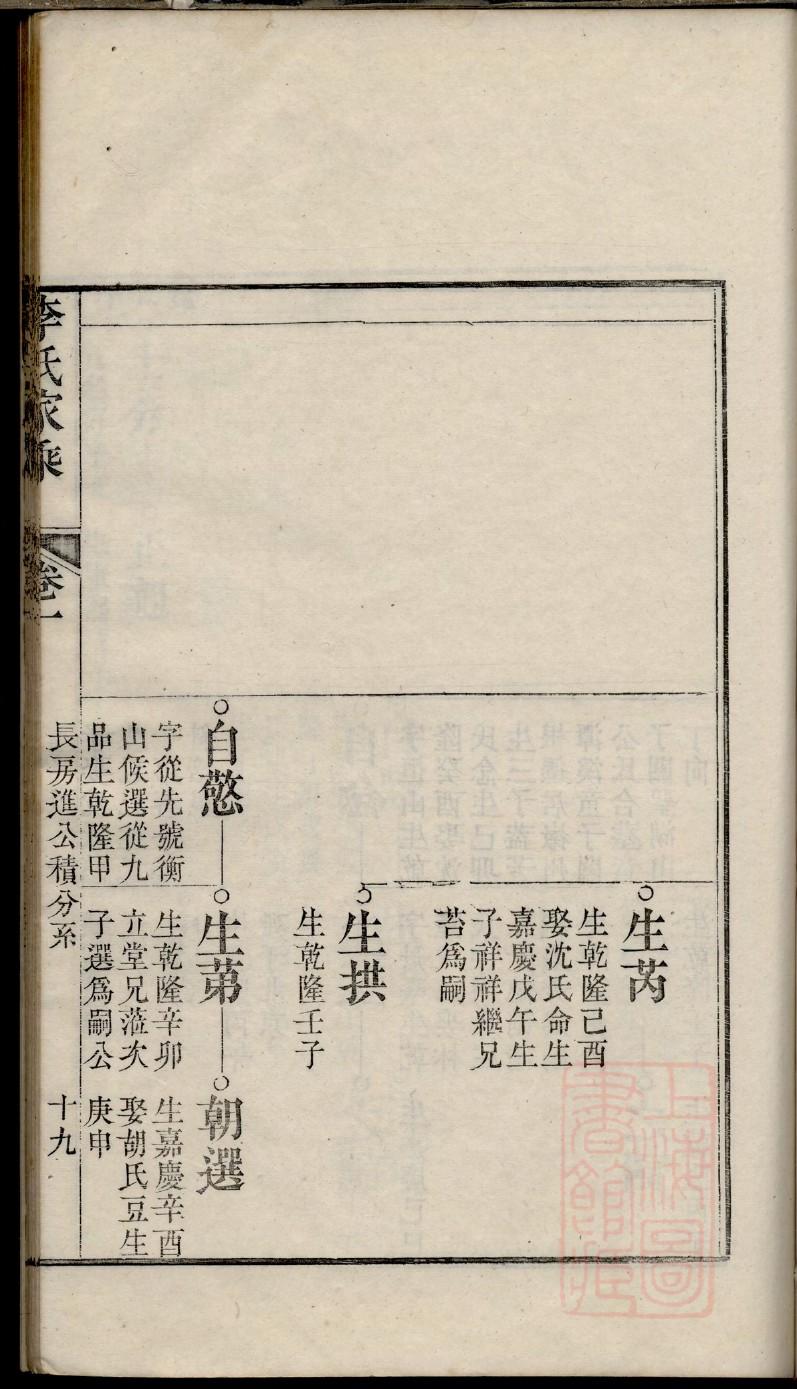 生芮
生乾隆己酉
娶沈氏命生
嘉慶戊午生
子祥祥繼兄
苔爲嗣
生拱
生乾隆壬子
自慜
字從先號衡
山候選從九
品生乾隆甲
生苐
生乾隆辛卯
立堂兄蒞次
子選爲嗣公
朝選
生嘉慶辛酉
娶胡氏豆生
庚申
李氏家乘
卷一
長房進公積分系
十九
上海圖書館藏